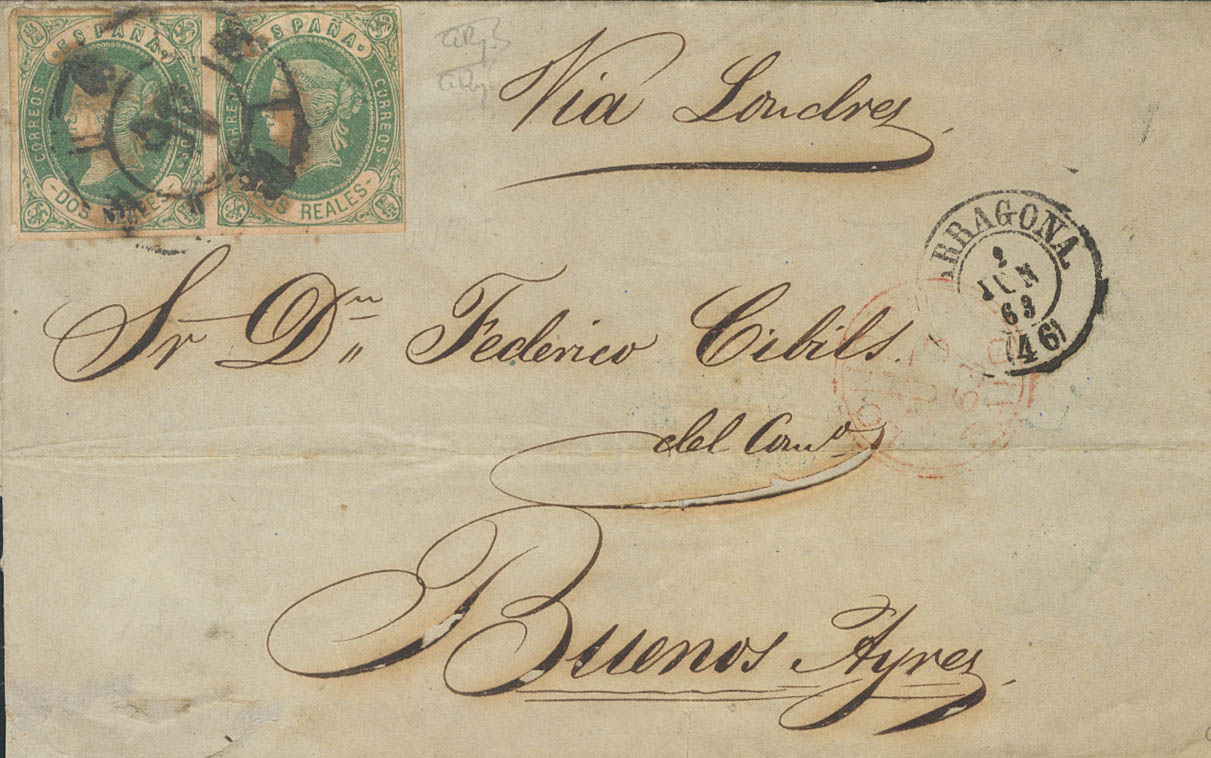 ESPAÑA ESPAÑA
CORREOS CORREOS CORREOS CORREOS
DOS REALES DOS REALES
Via Londres
TARRAGONA
2
JUN
63
(46)
Sr Dn Federico Cibils
del Comº
Buenos Ayres